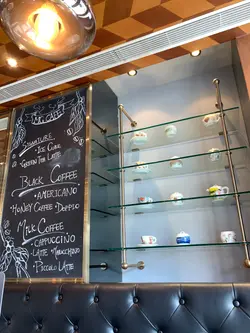 McCAFÉ
SIGNATURE
• ICE CUBE
• GREEN TEA LATTE
BLACK COFFEE
• AMERICANO
• HONEY COFFEE • DOPPIO
MILK COFFEE
• CAPPUCCINO
• LATTE • MACCHINO
PICCOLO LATTE